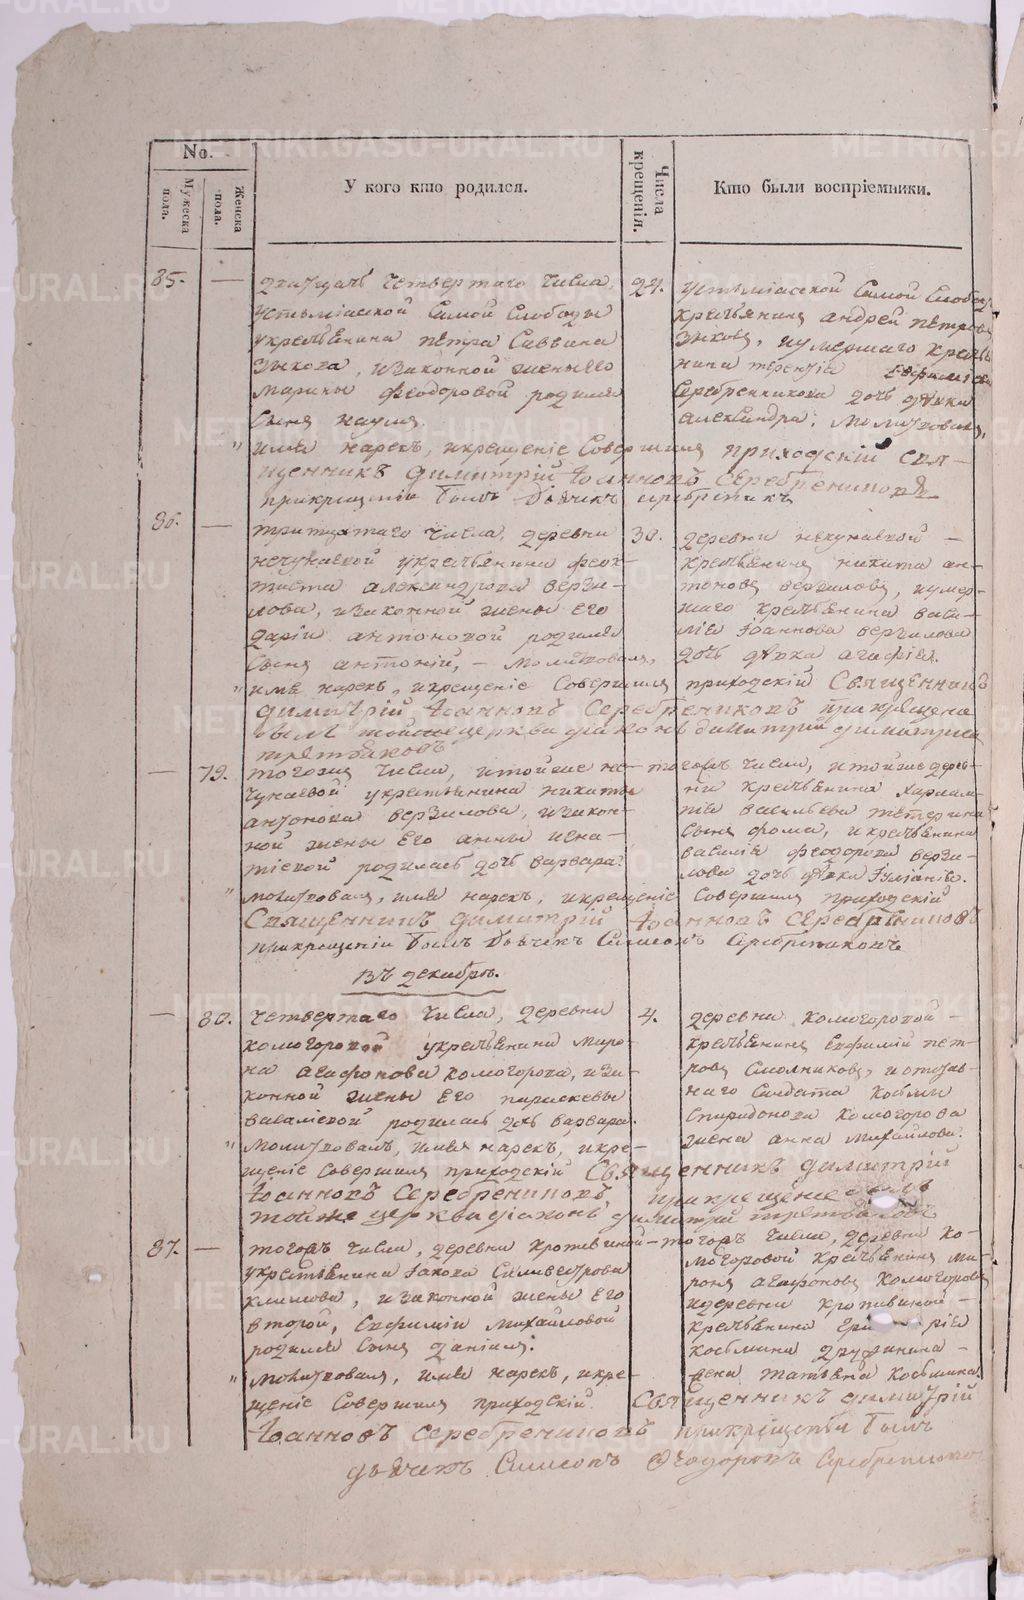 No.
Мужеска пола.
Женска пола.
У кого кто родился.
Числа крещенія.
Кто были воспріемники.
85. — двадцать четвертаго числа,
Устьміасской Самой Слободы
укрестьянина петра Саввина
Зыкова, изаконной жены его
марины Феодоровой родился
Сынъ наумъ.
24. Устьміасской Самой Слобод
крестьянинъ андрей петровъ
Зыковъ, иумершаго крестья
нина терентія
Серебренникова дочь дѣвка
александра; молитвовалъ,
" имя нарекъ, икрещеніе Совершилъ приходскій свя-
щенникъ димитрій Іоанновъ Серебрениковъ
прикрещеніи былъ Дьячекъ
86. — тритцатаго числа, деревни
нечунаевой укрестьянина феок-
тиста александрова верзи-
лова, изаконной жены его
даріи антоновой родился
Сынъ антоній, — молитвовалъ,
30. деревни нечунаевой —
крестьянинъ никита ан-
тоновъ верзиловъ, иумер-
шаго крестьянина васи-
лія Іоаннова верзилова
дочь дѣвка агафія.
" имя нарекъ, икрещеніе Совершилъ приходскій Священникъ
димитрій Іоанновъ Серебрениковъ прикрещеніи
былъ тойже церкви діаконъ димитрій димитріевъ
третьяковъ
— 79. тогожъ числа, итойже не-
чунаевой укрестьянина никиты
антонова верзилова, изакон-
ной жены его анны игна-
тіевой родилась дочь варвара.
тогожъ числа, итойже дерев-
ни крестьянина харлам-
пія васильева
Сынъ фома, и крестьянина
василія феодорова верзи-
лова дочь дѣвка Іуліанія.
" молитвовалъ, имя нарекъ, икрещеніе Совершилъ приходскій
Священникъ димитрій Іоанновъ Серебрениковъ
прикрещеніи былъ Дьячекъ Симеонъ Серебрениковъ
Въ декабрѣ.
— 80. четвертаго числа, деревни
комогоровой укрестьянина миро-
на агафонова комогорова, иза-
конной жены его параскевы
васильевой родилась дочь варвара.
4. деревни комогоровой —
крестьянинъ Евфимій пет-
ровъ Смолниковъ, иотстав-
наго Солдата Козьмы
Спиридонова комогорова
жена анна михайлова.
" молитвовалъ, имя нарекъ, икре-
щеніе Совершилъ приходскій Священникъ димитрій
Іоанновъ Серебрениковъ прикрещеніе былъ
тойже церкви діаконъ димитрій третьяковъ
87. — тогожъ числа, деревни кропивиной
укрестьянина Іакова Силивестрова
климова, изаконной жены его
второй, Евфиміи михайловой
родился Сынъ даніилъ.
тогожъ числа, деревни ко-
могоровой крестьянинъ ми-
ронъ агафоновъ комогоровъ
идеревни кропивиной —
крестьянина
козьмина дружинина —
жена татьяна козьмина.
" молитвовалъ, имя нарекъ, икре-
щеніе Совершилъ приходскій Священникъ димитрій
Іоанновъ Серебрениковъ прикрещеніи былъ
дьячекъ Симеонъ Феодоровъ Серебрениковъ